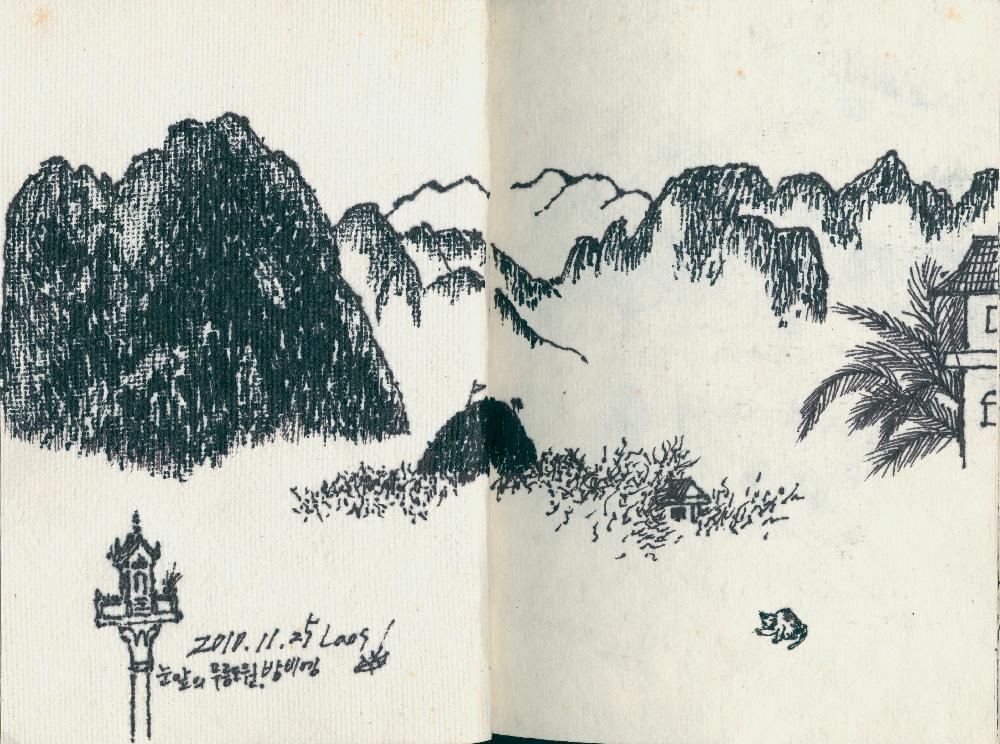 2010.11.25 Laos
눈앞의 무릉도원. 방비엥